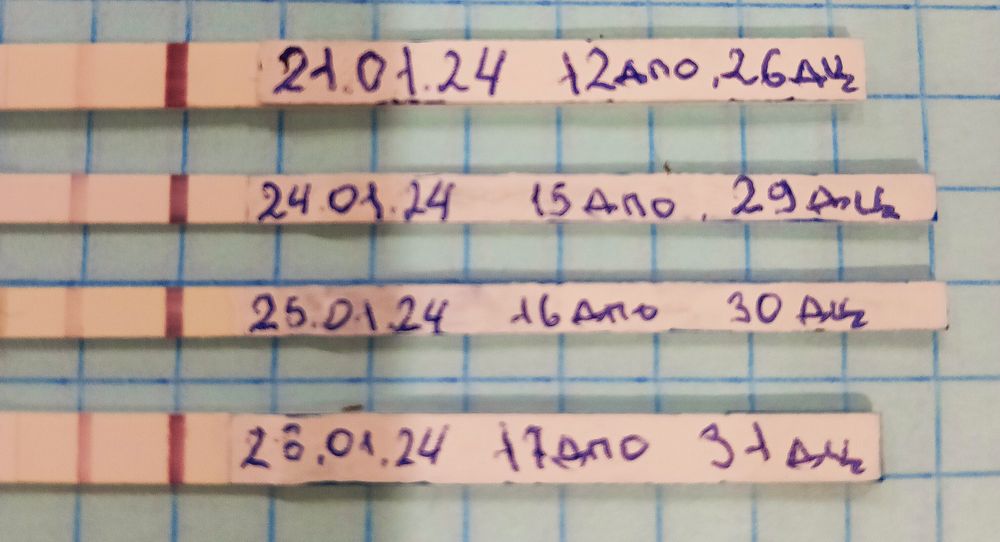 21.01.24 12дпо, 26дц
24.01.24 15дпо, 29дц
25.01.24 16дпо 30дц
26.01.24 17дпо 31дц